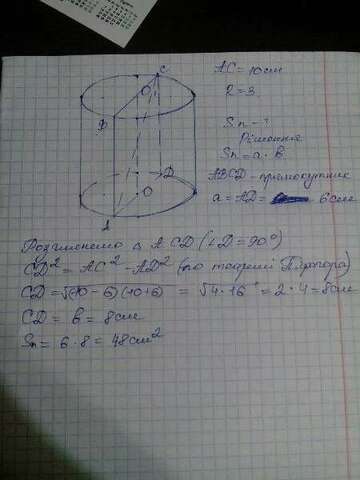 C
O
B
D
O
A
AC = 10см
r = 3
Sп - ?
Рішення
Sп = a · b
ABCD - прямокутник
a = AD = 6см
Розглянемо Δ ACD (∠D = 90°)
CD² = AC² - AD² (по теоремі Піфагора)
CD = √(10 - 6)(10+6) = √4 · 16 = 2 · 4 = 8см
CD = b = 8см
Sп = 6 · 8 = 48см²